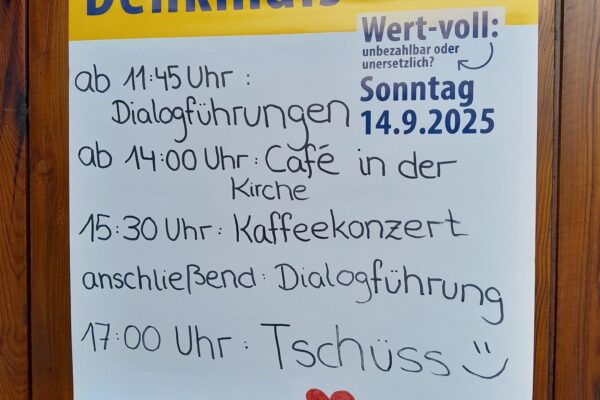 Denkmals
Wert-voll:
unbezahlbar oder
unersetzlich?
Sonntag
14.9.2025
ab 11:45 Uhr :
Dialogführungen
ab 14:00 Uhr : Café in der
Kirche
15:30 Uhr : Kaffeekonzert
anschließend : Dialogführung
17:00 Uhr : Tschüss